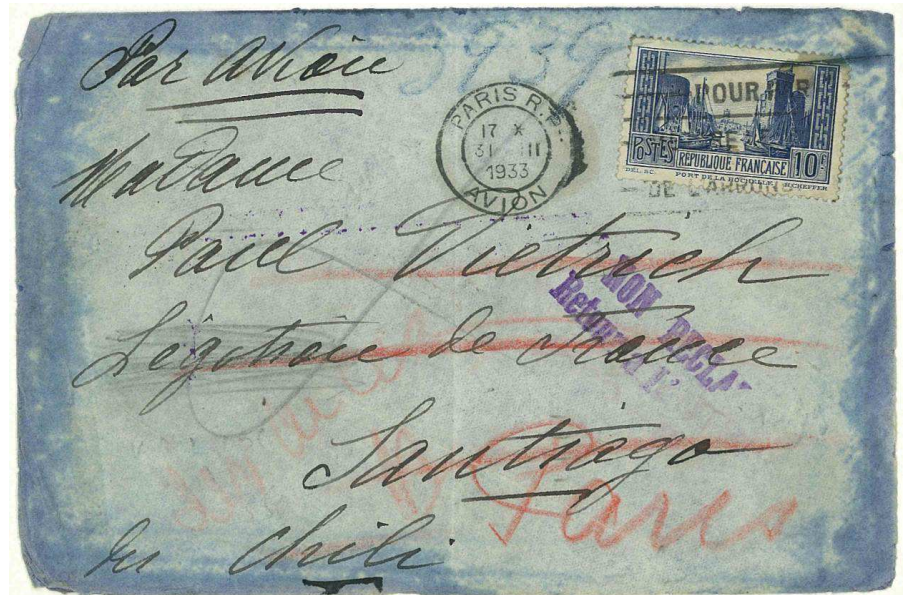 Par avion
PARIS R.P.
17 X
31 III
1933
AVION
POUR
POSTES RÉPUBLIQUE FRANÇAISE 10F
PORT DE LA ROCHELLE
CHEFFER
Madame
Paul Dietrich
NON RÉCLA
Légation de France
Santiago
Paris
du Chili